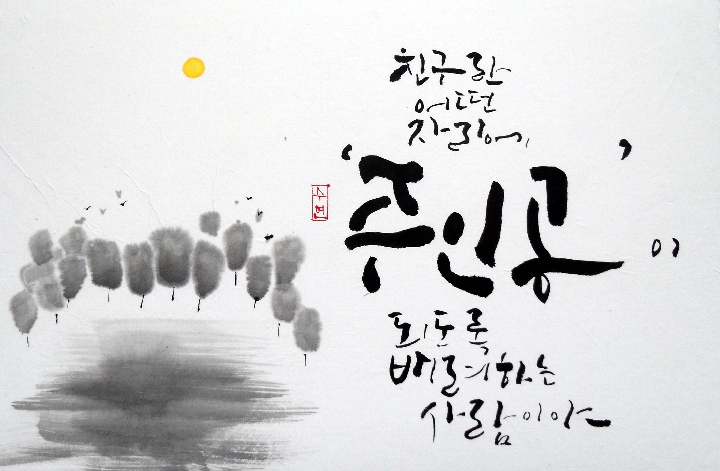 친구란
어떤
자리에
'주인공'이
되도록
배려하는
사람이야